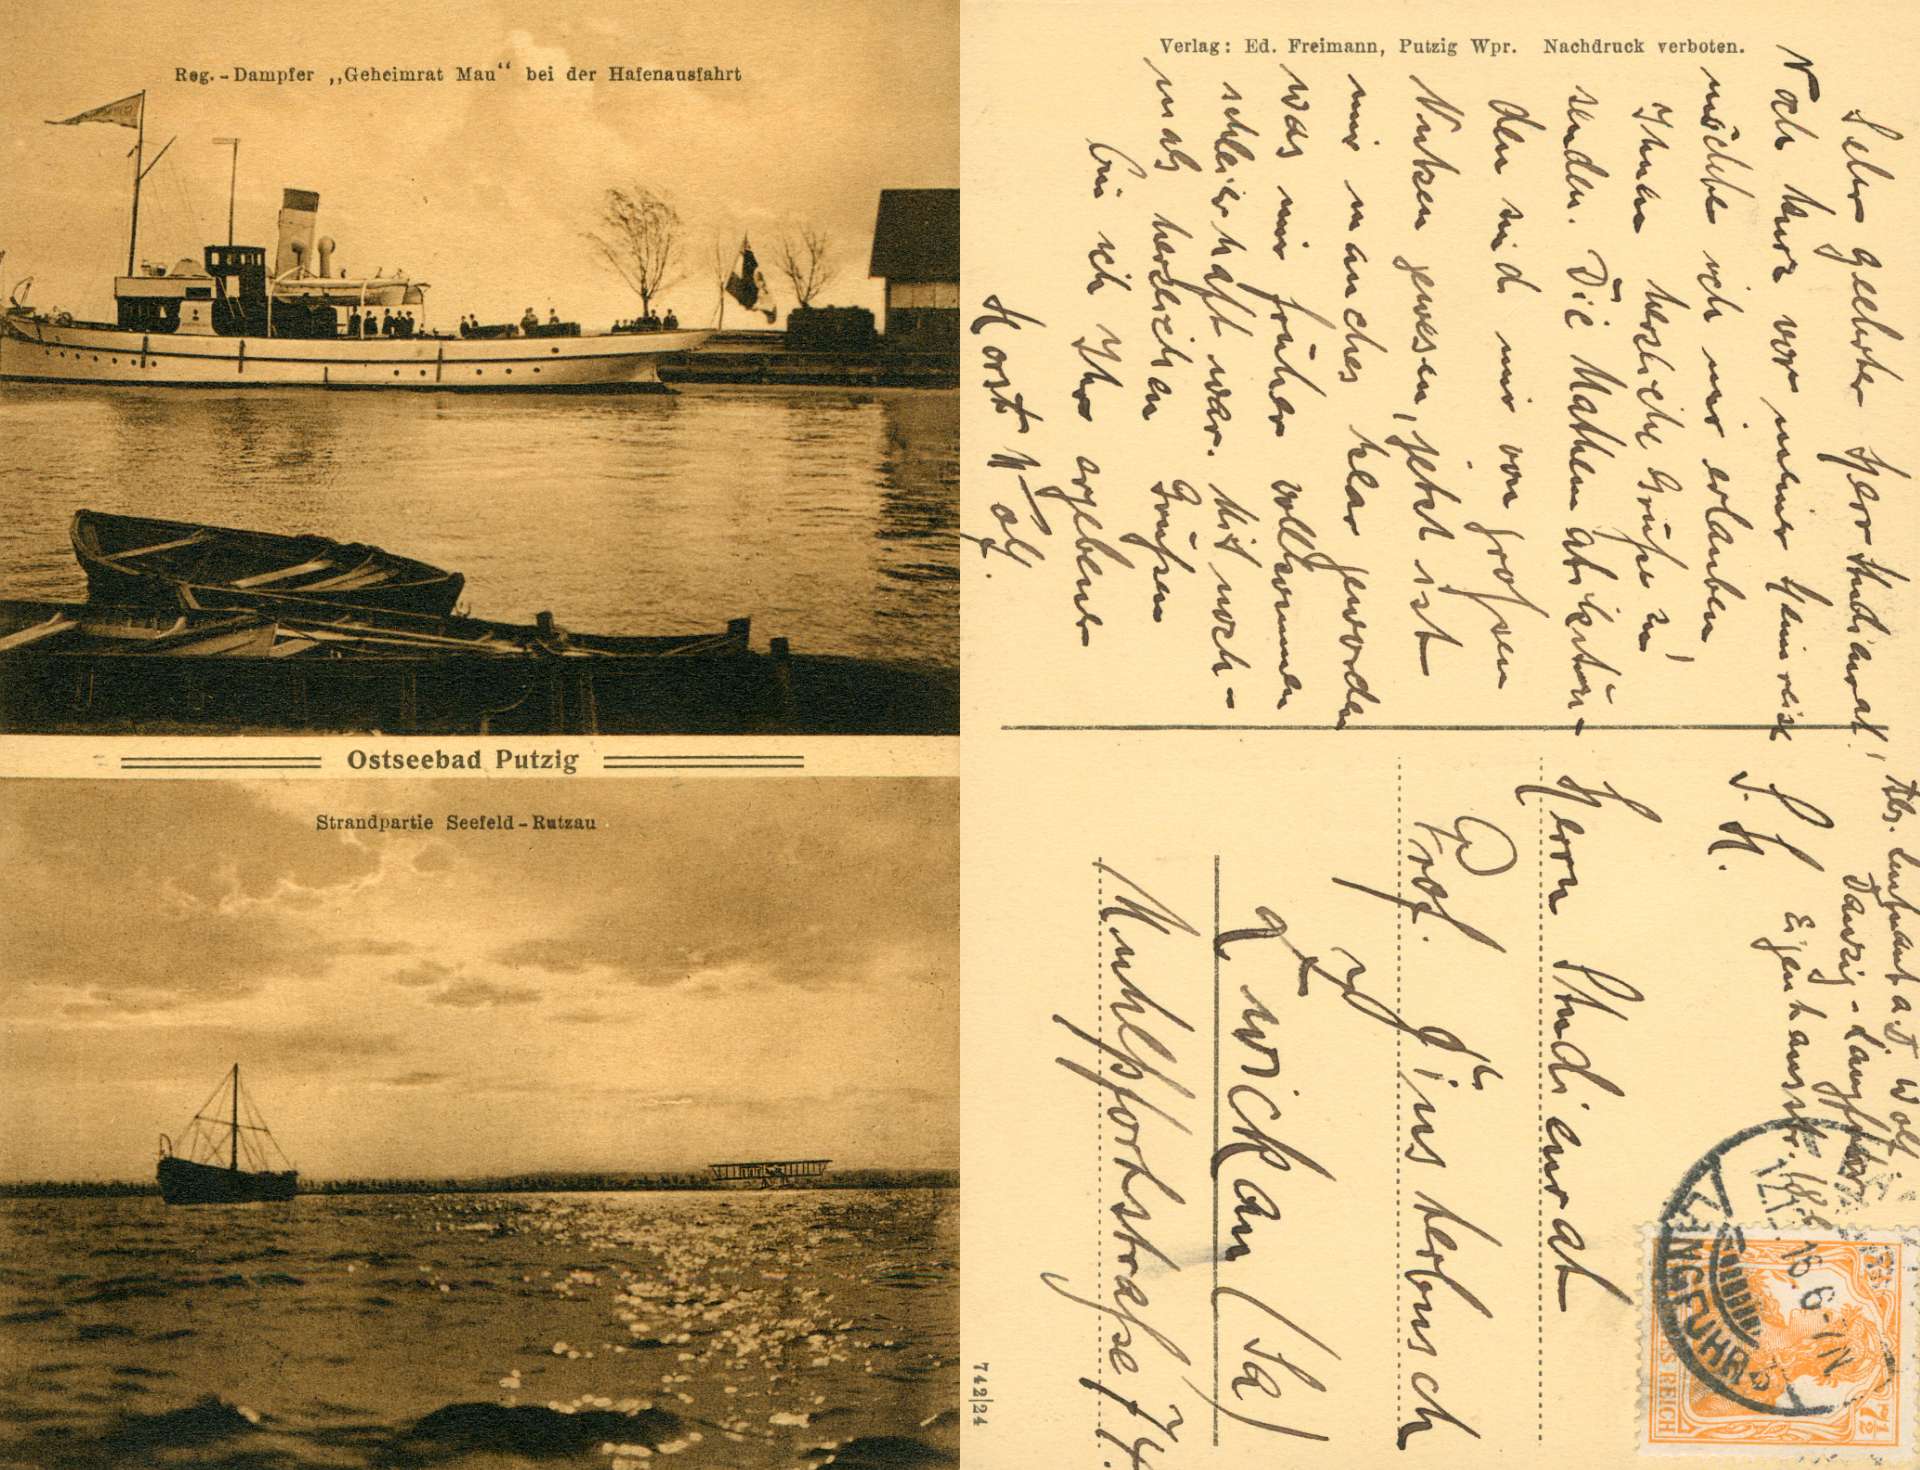 Reg.-Dampfer „Geheimrat Mau“ bei der Hafenausfahrt
Ostseebad Putzig
Strandpartie Seefeld-Rutzau
Verlag: Ed. Freimann, Putzig Wpr. Nachdruck verboten.
Sehr geehrter Herr Studienrat!
Noch kurz vor meiner Heimreise
möchte ich mir erlauben
Ihnen herzliche Grüße zu
senden. Die Mathem
den sind mir von großen
Nutzen gewesen, jetzt ist
mir manches klar geworden
was mir früher vollkommen
schleierhaft war. Mit noch-
mals herzlichen Grüßen
bin ich Ihr ergebener
Horst Wolf.
Abs. Leutnant a. D. Wolf
Danzig-Langfuhr
Eigenhausstr.
Herrn Studienrat
Prof. Günsterbusch
Zwickau (Sa)
Muhlpfortstraße 74.
LANGFUHR
16. 6-7N
7½
742|24